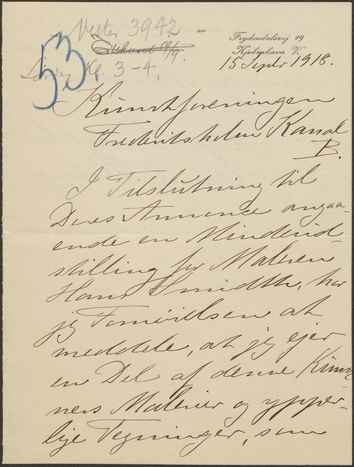 Vester 3942
53
Kl. 3-4.
Frydendalsvej 19
Kjøbenhavn V.
15 Septbr 1918.
Kunstforeningen
Frederiksholms Kanal
B.
I Tilslutning til
Deres Annonce angaa-
ende en Mindeud-
stilling for Maleren
Hans Smidth, har
jeg Fornøielsen at
meddele, at jeg ejer
en Del af denne Kunst-
ners Malerier og ypper-
lige Tegninger, som